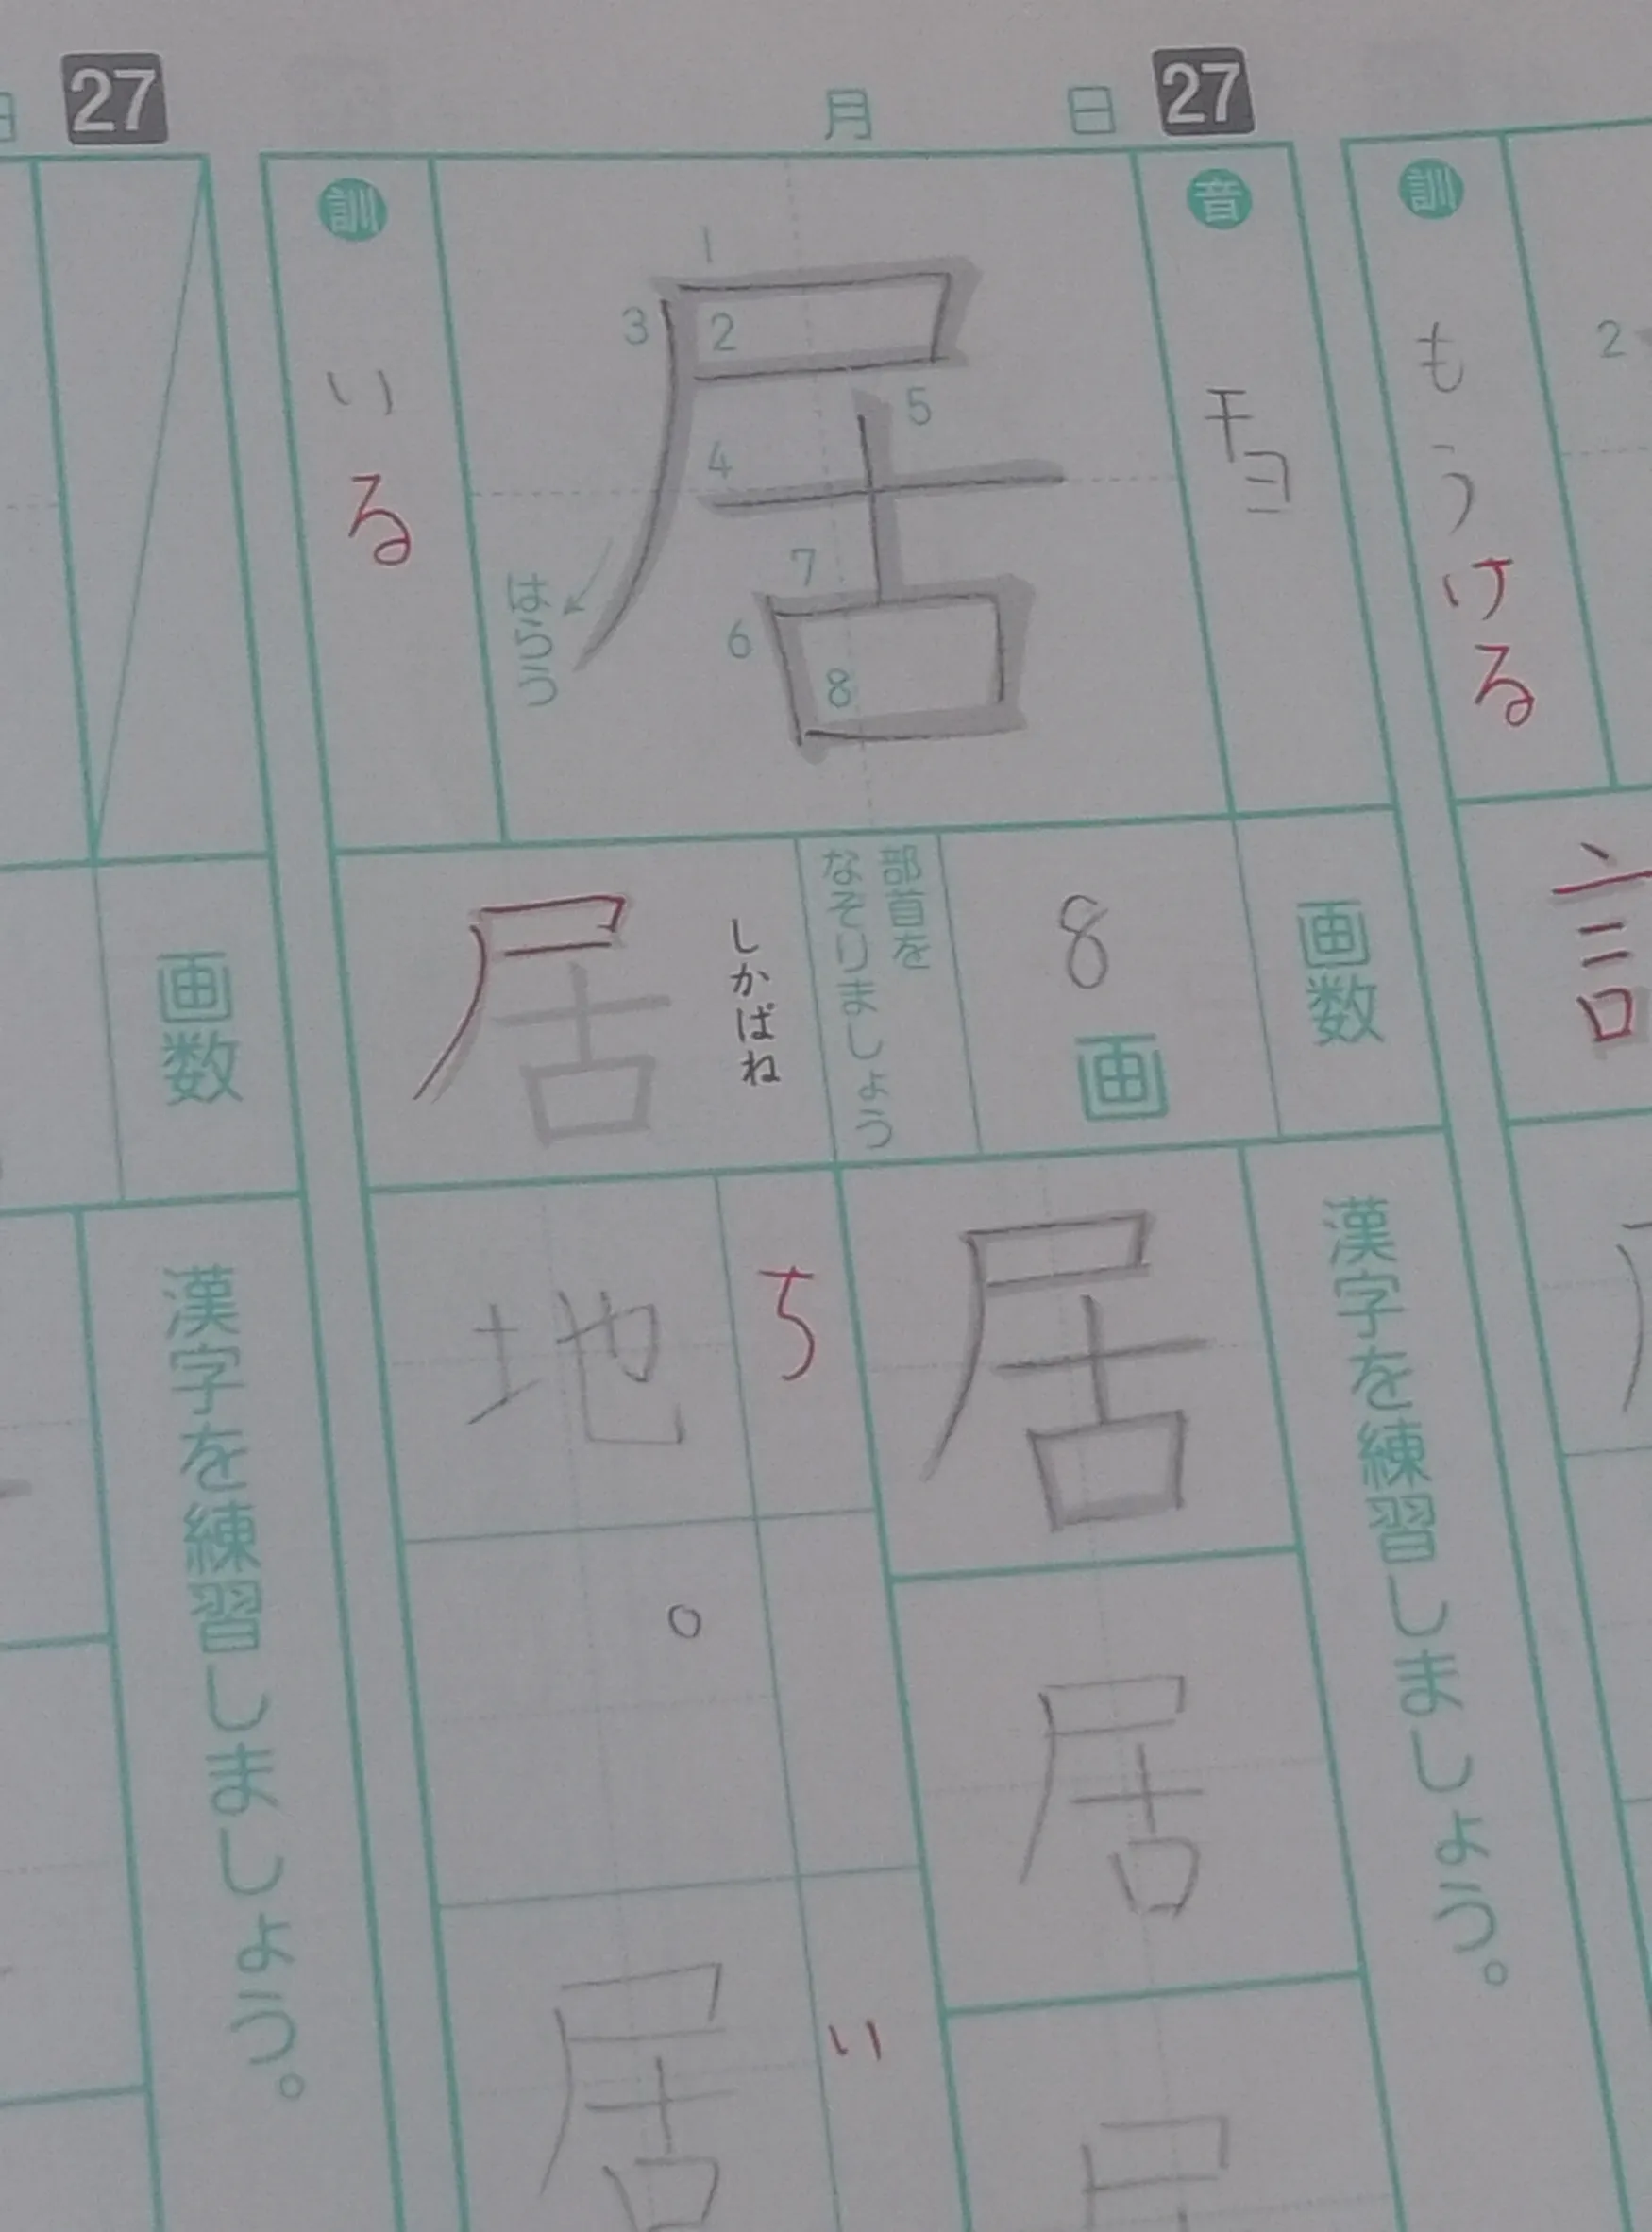 訓
もうける
2
言
27
月 日
音
キョ
居
1
2
3
4
5
6
7
8
はらう
訓
いる
画数
8画
部首を
なぞりましょう
しかばね
居
漢字を練習しましょう。
居
居
ち
地
。
い
居
27
日
画数
漢字を練習しましょう。